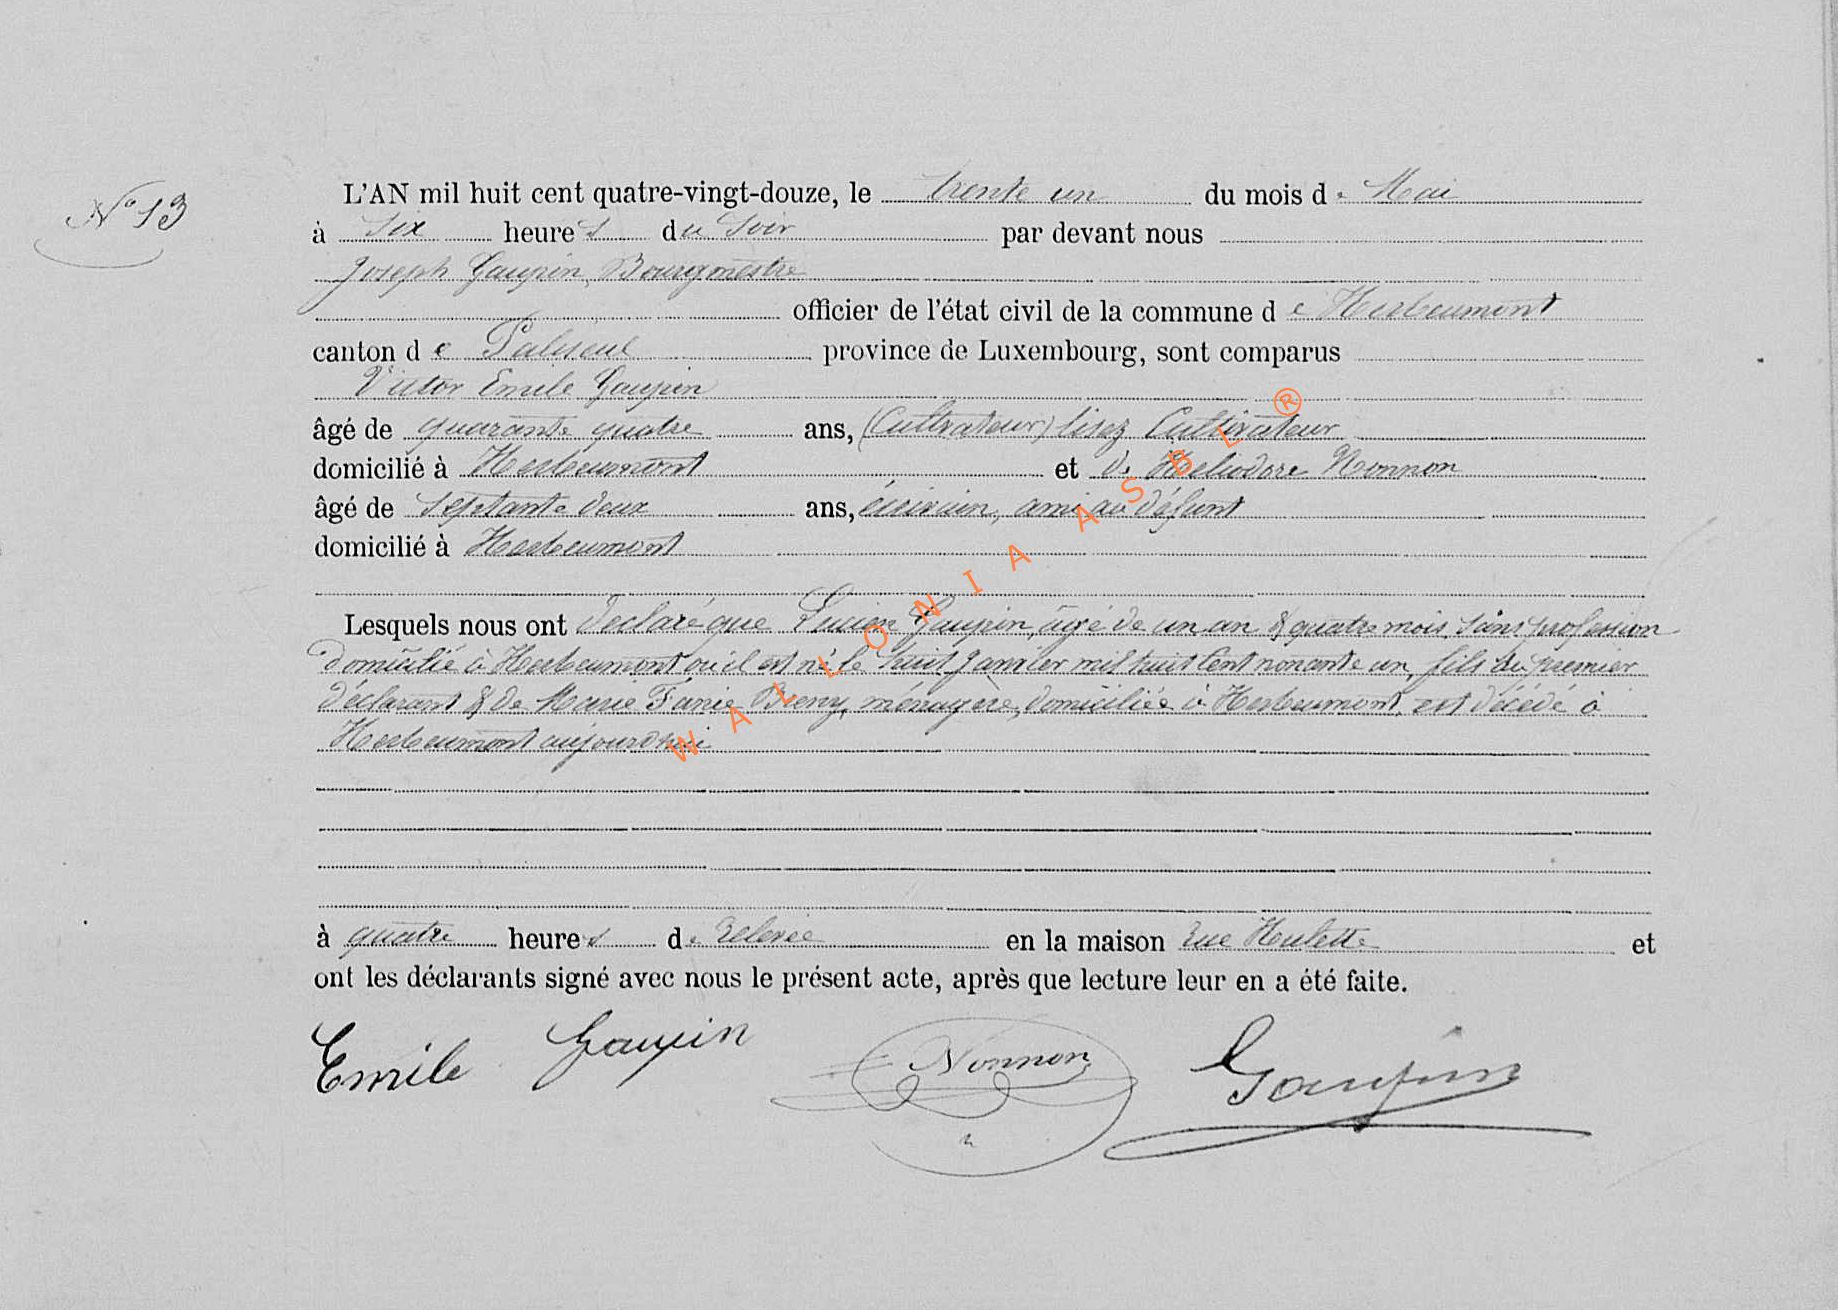 N° 13
L'AN mil huit cent quatre-vingt-douze, le trente un du mois de Mai
à six heures du soir par devant nous
Joseph Gaupin, Bourgmestre
officier de l'état civil de la commune de Herbeumont
canton de Paliseul province de Luxembourg, sont comparus
Victor Emile Gaupin
âgé de quarante quatre ans, (Cultrateur) lisez Cultivateur
domicilié à Herbeumont et de Héliodore Nonnon
âgé de septante deux ans, écrivain, ami au défunt
domicilié à Herbeumont
Lesquels nous ont déclaré que Lucien Gaupin, âgé de un an & quatre mois, sans profession
domicilié à Herbeumont où il est né le huit Janvier mil huit cent nonante un, fils du premier
déclarant & de Marie Fanie, ménagère, domiciliée à Herbeumont, est décédé à
Herbeumont aujourd'hui
à quatre heures de relevée en la maison rue Hulette et
ont les déclarants signé avec nous le présent acte, après que lecture leur en a été faite.
Emile Gaupin Nonnon Gaupin
WALLONIA ASBL ®